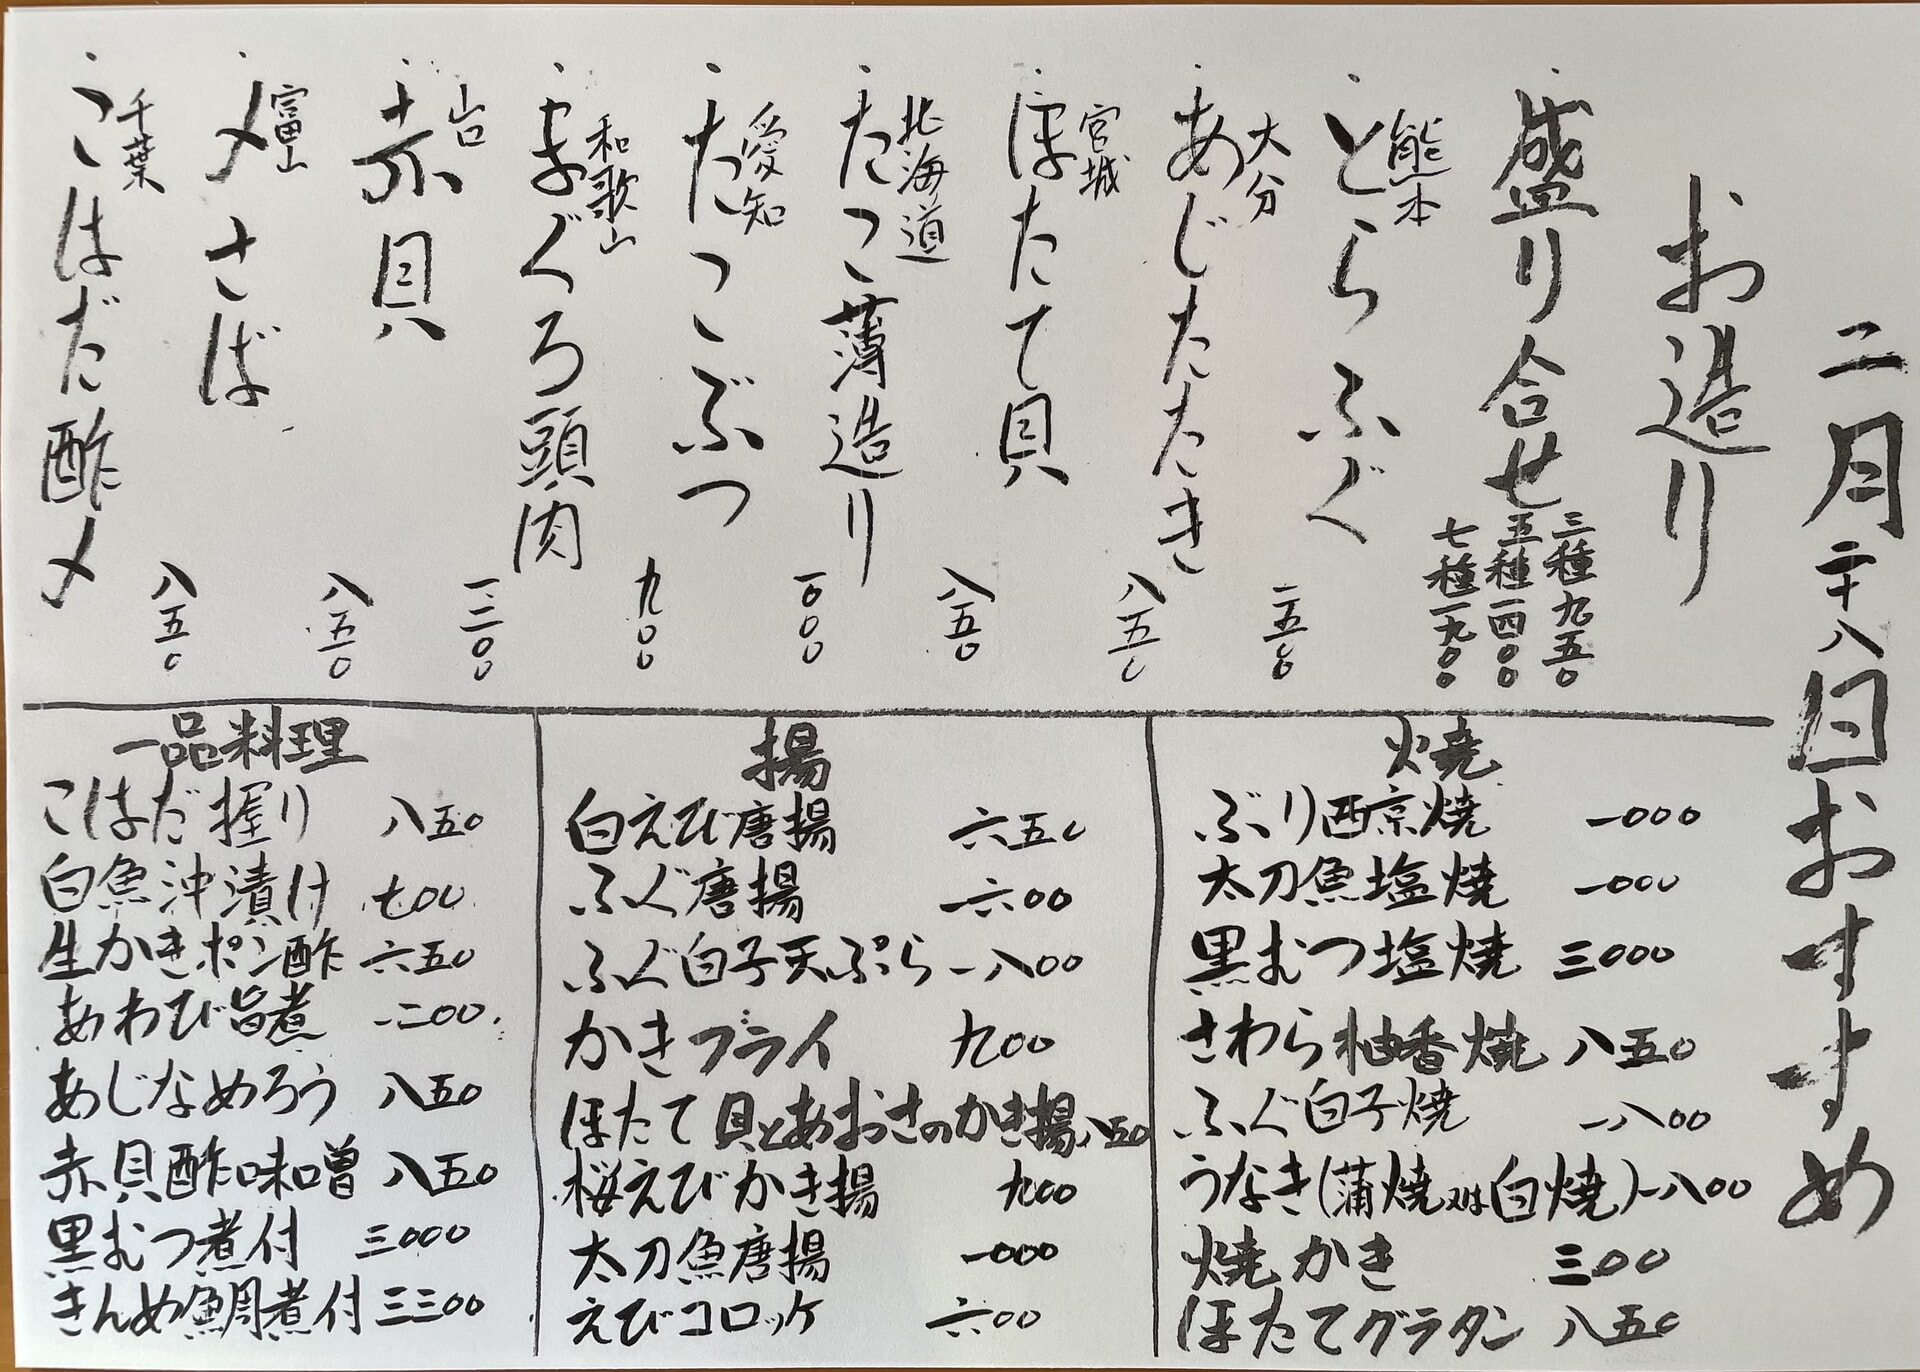 二月二十八日おすすめ
お造り
盛り合せ
三種九五〇
五種一四〇〇
七種一九〇〇
熊本
とらふぐ
一五〇〇
大分
あじたたき
八五〇
宮城
ほたて貝
八五〇
北海道
たこ薄造り
一〇〇〇
愛知
たこぶつ
九〇〇
和歌山
まぐろ頭肉
一二〇〇
山口
赤貝
八五〇
富山
〆さば
八五〇
千葉
こはだ酢〆
焼
ぶり西京焼 一〇〇〇
太刀魚塩焼 一〇〇〇
黒むつ塩焼 三〇〇〇
さわら柚香焼 八五〇
ふぐ白子焼 一八〇〇
うなき(蒲焼又は白焼)一八〇〇
焼かき 三〇〇
ほたてグラタン 八五〇
揚
白えび唐揚 六五〇
ふぐ唐揚 一六〇〇
ふぐ白子天ぷら 一八〇〇
かきフライ 九〇〇
ほたて貝とあおさのかき揚 八五〇
桜えびかき揚 九〇〇
太刀魚唐揚 一〇〇〇
えびコロッケ 六〇〇
一品料理
こはだ握り 八五〇
白魚沖漬け 七〇〇
生かきポン酢 六五〇
あわび旨煮 一二〇〇
あじなめろう 八五〇
赤貝酢味噌 八五〇
黒むつ煮付 三〇〇〇
きんめ鯛煮付 三三〇〇